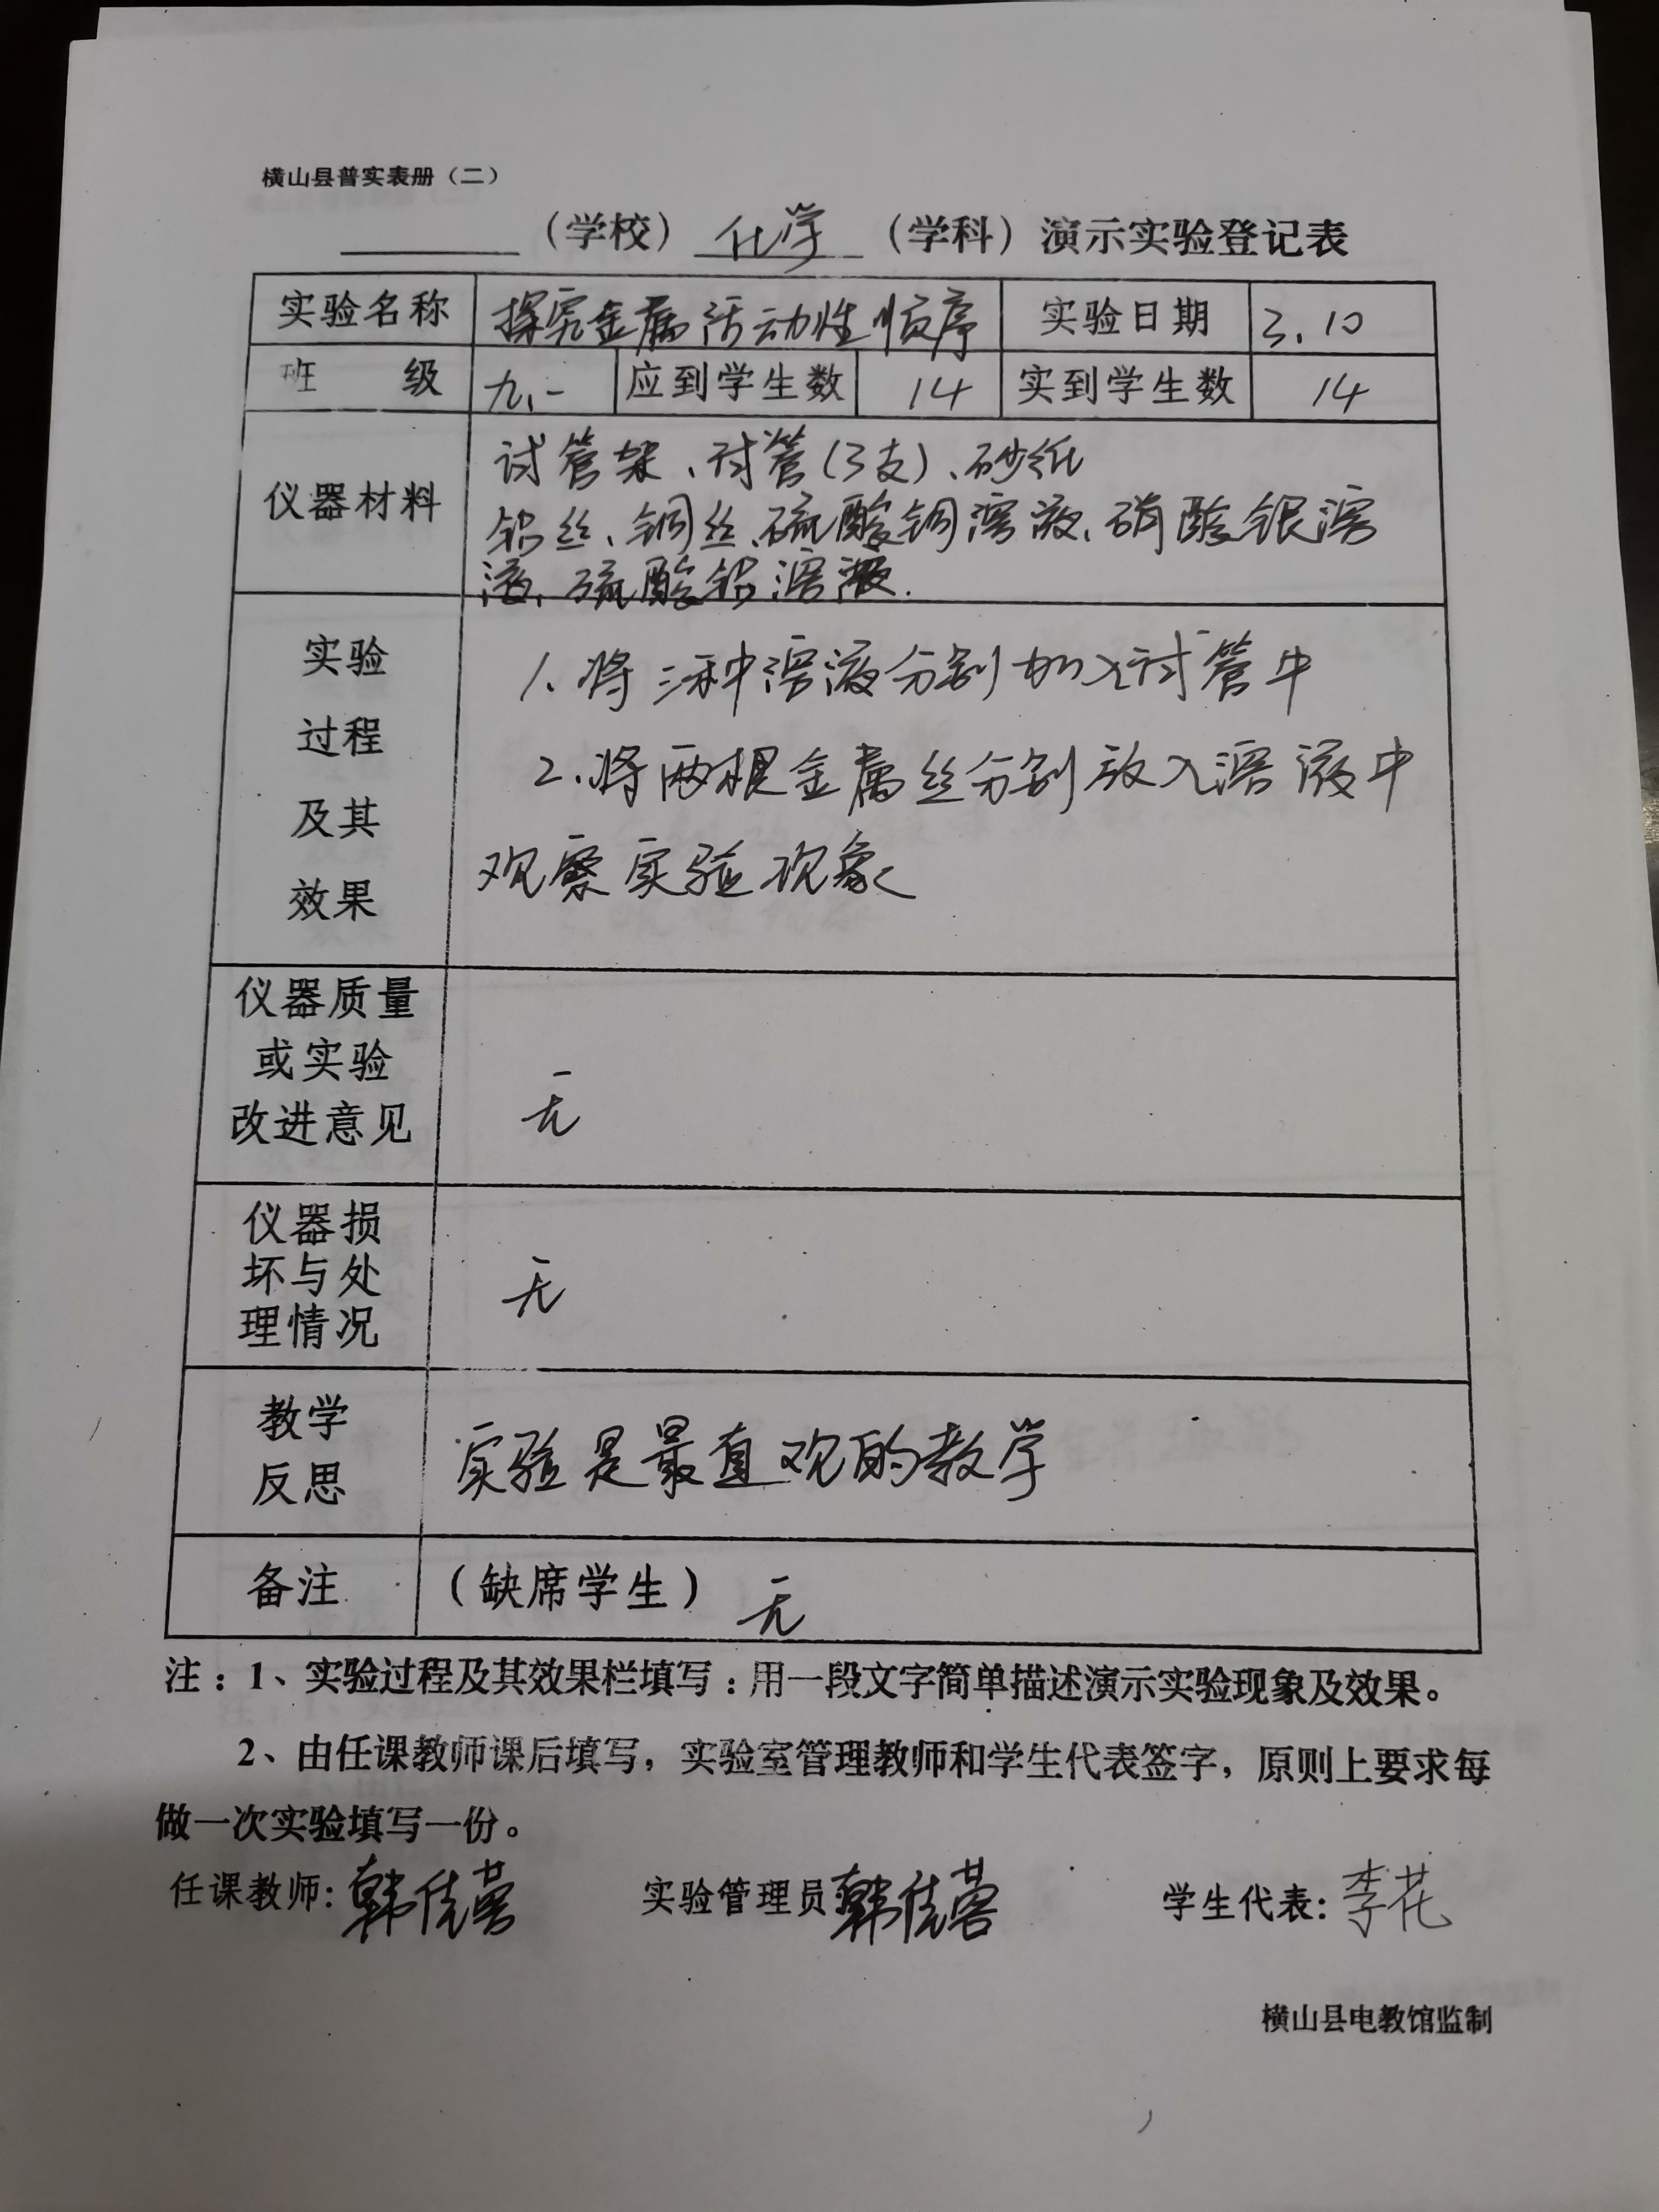 横山县普实表册（二）
（学校）化学（学科）演示实验登记表
实验名称 探究金属活动性顺序 实验日期 3.10
班 级 九.一 应到学生数 14 实到学生数 14
试管架、试管(3支)、砂纸
仪器材料
铝丝、铜丝、硫酸铜溶液、硝酸银溶
液、硫酸铝溶液.
实验
1.将三种溶液分别加入试管中
过程
2.将两根金属丝分别放入溶液中
及其
观察实验现象
效果
仪器质量
或实验
改进意见
无
仪器损
坏与处
理情况
无
教学
反思
实验是最直观的教学
备注 （缺席学生） 无
注：1、实验过程及其效果栏填写：用一段文字简单描述演示实验现象及效果。
2、由任课教师课后填写，实验室管理教师和学生代表签字，原则上要求每
做一次实验填写一份。
任课教师: 韩佳蓉 实验管理员 韩佳蓉 学生代表: 李花
横山县电教馆监制